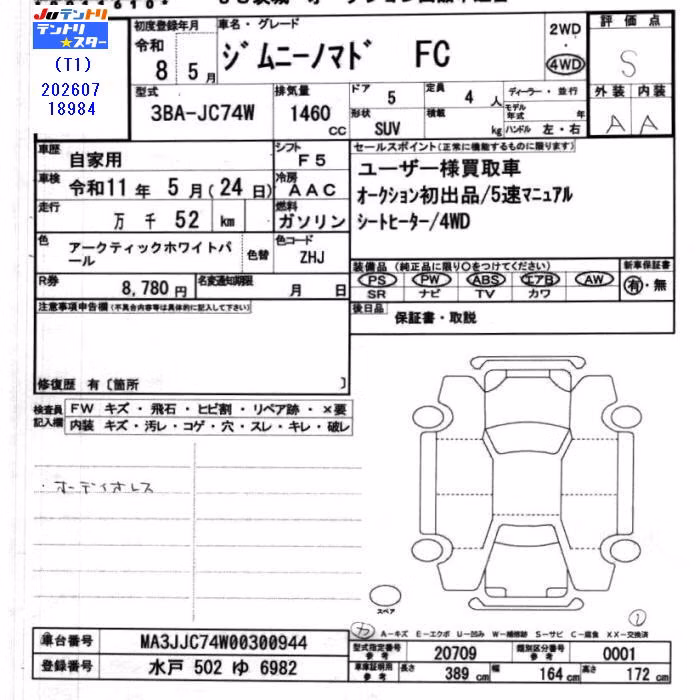 JU テントリ
テントリ★スター
(T1)
202607
18984
初度登録年月
令和
8 5月
車名・グレード
ジムニーノマド FC
2WD
・
4WD
評価点
S
外装 内装
A A
型式
3BA-JC74W
排気量
1460 cc
ドア 5
定員 4 人
形状 SUV
積載 kg
ディーラー・並行
モデル年式 年
ハンドル 左・右
車歴 自家用
シフト F5
車検 令和11年 5月(24日)
冷房 AAC
走行 万 千 52 km
燃料 ガソリン
色 アークティックホワイトパール
色替
色コード ZHJ
R券 8,780円
名変通知期限 月 日
セールスポイント(正常に機能するものに限ります)
ユーザー様買取車
オークション初出品/5速マニュアル
シートヒーター/4WD
装備品 (純正品に限り○をつけてください)
PS PW ABS エアB AW
SR ナビ TV カワ
新車保証書
有・無
後日品 保証書・取説
注意事項申告欄(不具合内容等は具体的に記入して下さい)
修復歴 有〔箇所 〕
検査員記入欄
FW キズ・飛石・ヒビ割・リペア跡・×要
内装 キズ・汚レ・コゲ・穴・スレ・キレ・破レ
・オーディオレス
スペア
A-キズ E-エクボ U-凹み W-補修跡 S-サビ C-腐食 XX-交換済
1
車台番号 MA3JJC74W00300944
登録番号 水戸 502 ゆ 6982
型式指定番号 参考 20709
類別区分番号 参考 0001
車庫証明用 参考 長さ 389 cm 幅 164 cm 高さ 172 cm